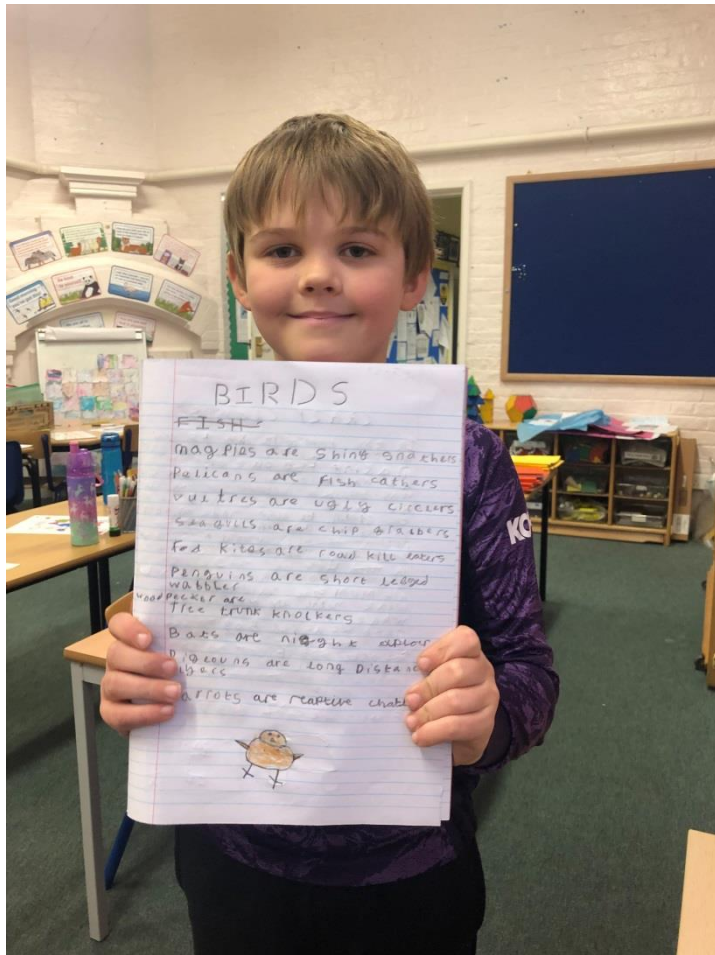 BIRDS
FISH
magpies are shiny snathers
Pelicans are fish cathers
vultres are ugly circlers
seagulls are chip grabbers
red kites are road kill eaters
Penguins are short legged
wabbler
wood pecker are
tree trunk knockers
Bats are night
Pigeouns are long Distanc
arrots are chat
KO